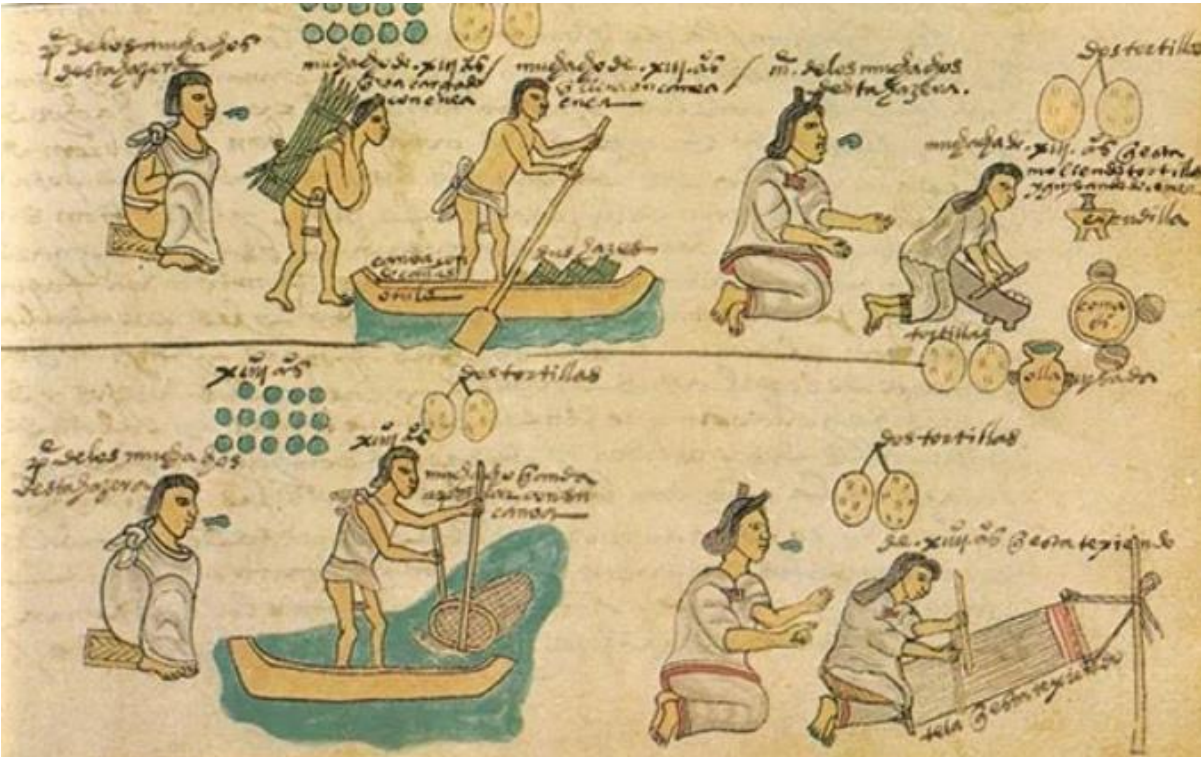 pe. de los muchachos
desta hazera
muchacho de. xiij. aos
q̃ va cargado
con enea
muchacho de. xiij. aos
q̃ lleva con canoa
enea
me. de los muchachos
desta hazera.
dos tortillas
muchacha de. xiij. aos q̃ esta
moliendo tortillas
escudilla
canoa con
sus hazes
tortillas
coma
olla
xiiij aos
dos tortillas
pe. de los muchachos
desta hazera
xiiij aos
muchacho q̃ anda
canoa
dos tortillas
de. xiiij. aos q̃ esta texiendo
tela q̃ esta texiendo